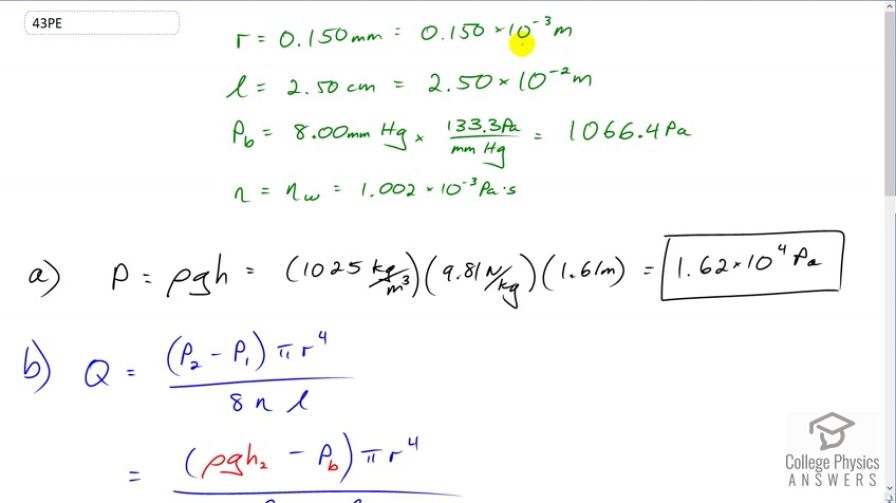 43PE
r = 0.150 mm = 0.150 × 10⁻³ m
l = 2.50 cm = 2.50 × 10⁻² m
P_b = 8.00 mm Hg × 133.3 Pa / mm Hg = 1066.4 Pa
η = η_w = 1.002 × 10⁻³ Pa·s
a) P = ρgh = (1025 kg/m³)(9.81 N/kg)(1.61m) = 1.62 × 10⁴ Pa
b) Q = (P₂ - P₁) π r⁴ / 8 η l
= (ρgh₂ - P_b) π r⁴
College Physics
ANSWERS